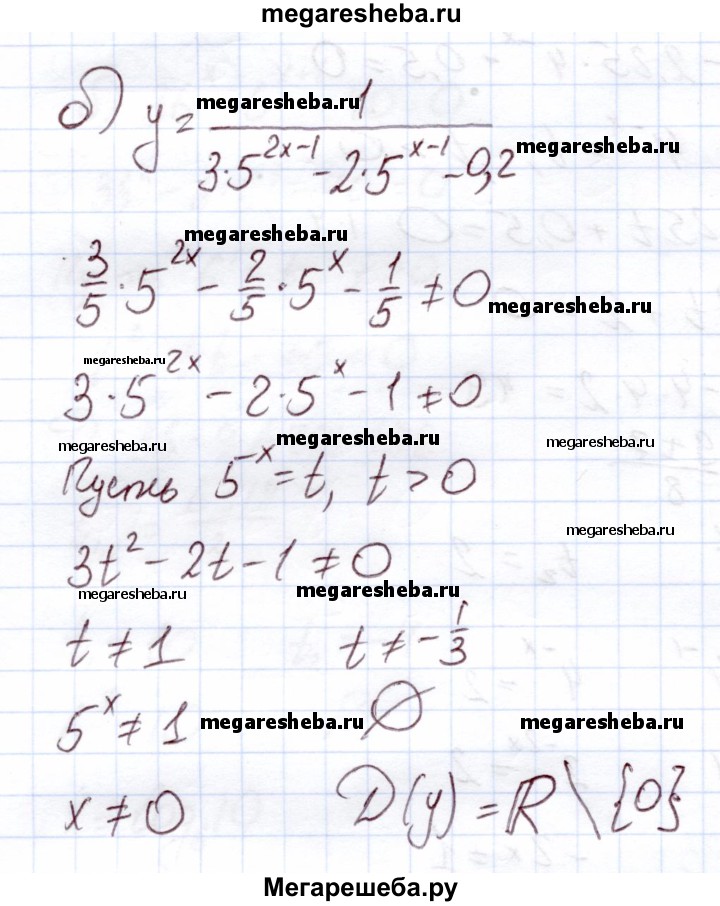 megaresheba.ru
б) y = 1 / (3·5^(2x-1) - 2·5^(x-1) - 0,2)
megaresheba.ru
megaresheba.ru
megaresheba.ru
3/5 · 5^(2x) - 2/5 · 5^x - 1/5 ≠ 0
megaresheba.ru
megaresheba.ru
3·5^(2x) - 2·5^x - 1 ≠ 0
megaresheba.ru megaresheba.ru megaresheba.ru
Пусть 5^(-x) = t, t > 0
megaresheba.ru
3t² - 2t - 1 ≠ 0
megaresheba.ru megaresheba.ru
t ≠ 1 t ≠ -1/3
5^x ≠ 1 megaresheba.ru ∅ megaresheba.ru
x ≠ 0 D(y) = R \ {0}
Мегарешеба.ру